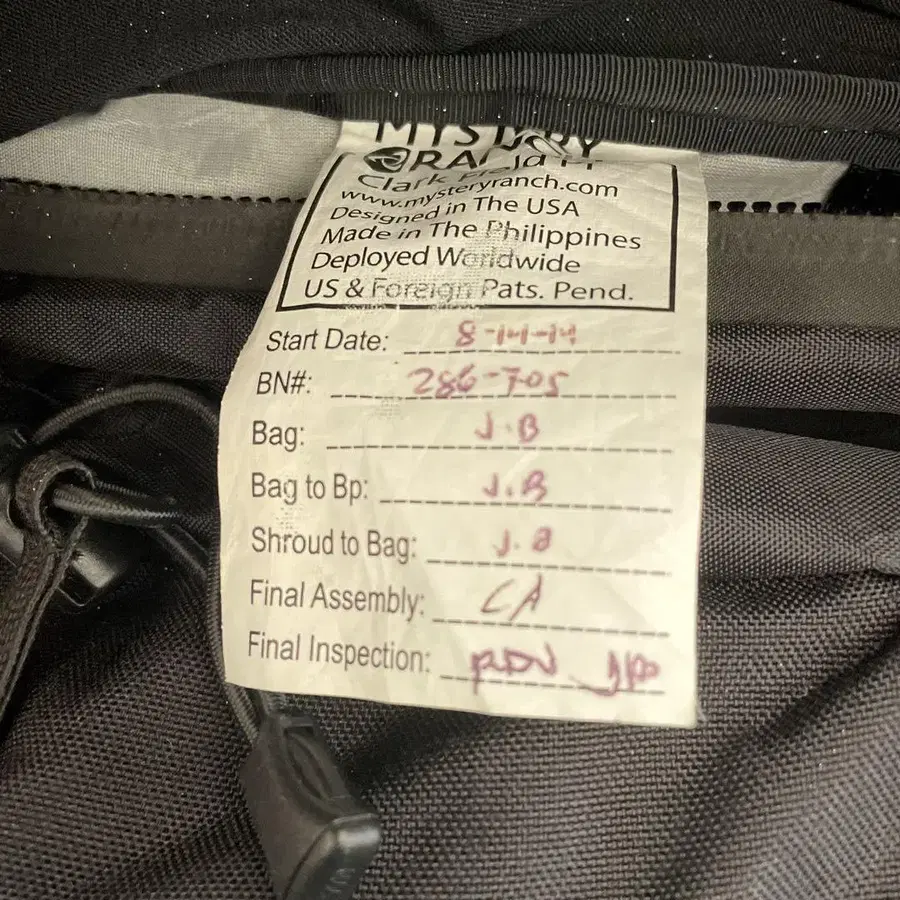 MYSTERY
RANCH
Clark Field
www.mysteryranch.com
Designed in The USA
Made in The Philippines
Deployed Worldwide
US & Foreign Pats. Pend.
Start Date: 8-14-14
BN#: 286-705
Bag: J.B
Bag to Bp: J.B
Shroud to Bag: J.B
Final Assembly: CA
Final Inspection: